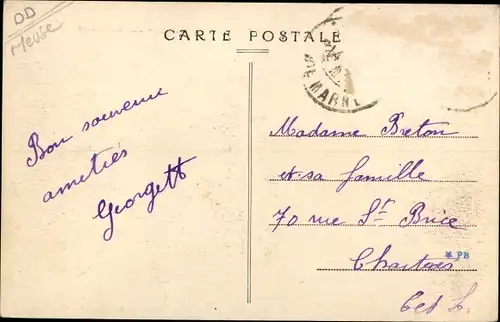 DD
Meuse
CARTE POSTALE
MARNE
Bon souvenir
amitiés
Georgett
Madame Breton
et sa famille
70 rue St Brice
Chartres
* PB
E et L.